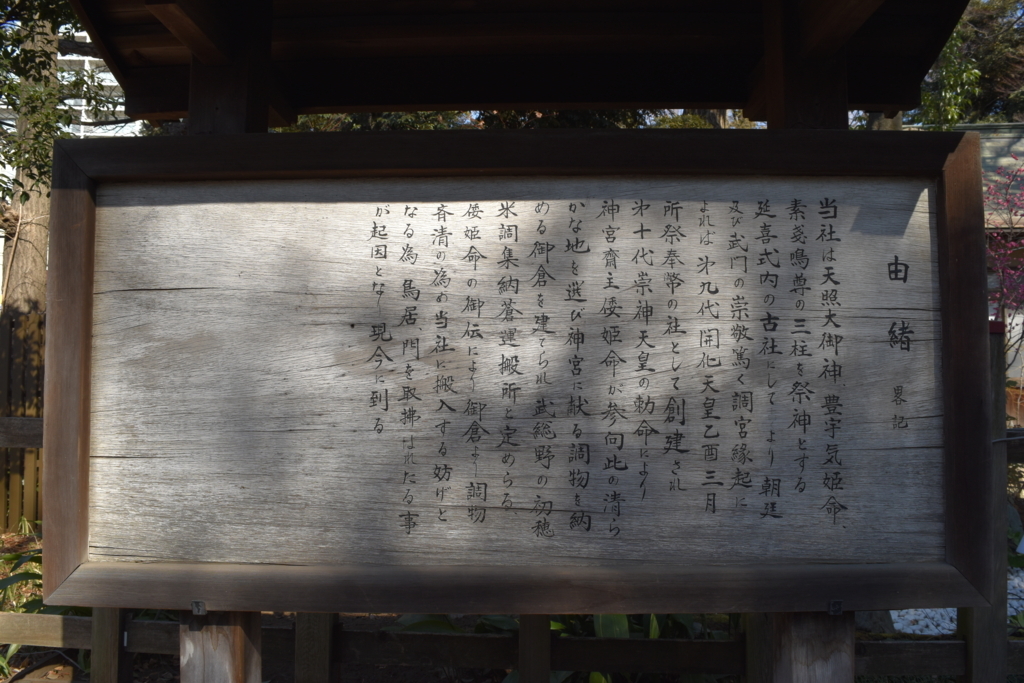 由緒 畧記
当社は天照大御神、豊宇気姫命、
素戔鳴尊の三柱を祭神とする
延喜式内の古社にして より朝廷
及び武門の崇敬篤く調宮縁起に
よれは 㐧九代開化天皇乙酉三月
所祭奉幣の社として創建され
㐧十代崇神天皇の勅命により
神宮齋主倭姫命が参向此の清ら
かな地を選び神宮に献る調物を納
める御倉を建てられ武総野の初穂
米調集納蒼運搬所と定めらる
倭姫命の御伝により御倉より調物
斉清の為め当社に搬入する妨げと
なる為 鳥居、門を取拂はれたる事
が起因となり現今に到る